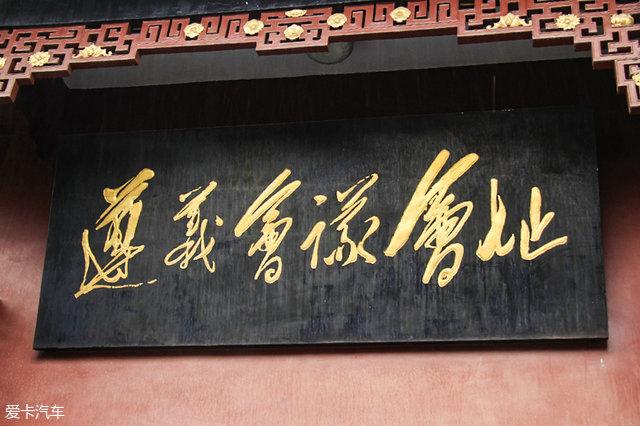 遵義會議會址
爱卡汽车